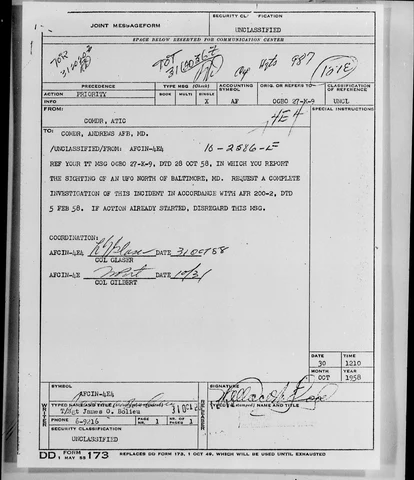 JOINT MESSAGEFORM
SECURITY CLASSIFICATION
UNCLASSIFIED
SPACE BELOW RESERVED FOR COMMUNICATION CENTER
TOT
987
PRECEDENCE
TYPE MSG (Check)
ACCOUNTING SYMBOL
ORIG. OR REFERS TO
CLASSIFICATION OF REFERENCE
ACTION PRIORITY
BOOK MULTI SINGLE
X
AF
OGBO 27-K-9
UNCL
INFO
FROM:
SPECIAL INSTRUCTIONS
COMDR, ATIC
4E4
TO:
COMDR, ANDREWS AFB, MD.
/UNCLASSIFIED/FROM: AFCIN-4E4 10-2686-E
REF YOUR TT MSG OGBO 27-K-9, DTD 28 OCT 58, IN WHICH YOU REPORT
THE SIGHTING OF AN UFO NORTH OF BALTIMORE, MD. REQUEST A COMPLETE
INVESTIGATION OF THIS INCIDENT IN ACCORDANCE WITH AFR 200-2, DTD
5 FEB 58. IF ACTION ALREADY STARTED, DISREGARD THIS MSG.
COORDINATION:
AFCIN-4E4 DATE 31 Oct 58
COL GLASER
AFCIN-4E DATE 10/31
COL GILBERT
DATE TIME
30 1210
MONTH YEAR
OCT 1958
SYMBOL
AFCIN-4E4
SIGNATURE
WRITER
TYPED NAME AND TITLE
T/Sgt James O. Bolieu
RELEASER
TYPED NAME AND TITLE
PHONE 6-9216
PAGE NR. 1
NR. OF PAGES 1
SECURITY CLASSIFICATION
UNCLASSIFIED
DD FORM 1 MAY 55 173 REPLACES DD FORM 173, 1 OCT 49, WHICH WILL BE USED UNTIL EXHAUSTED